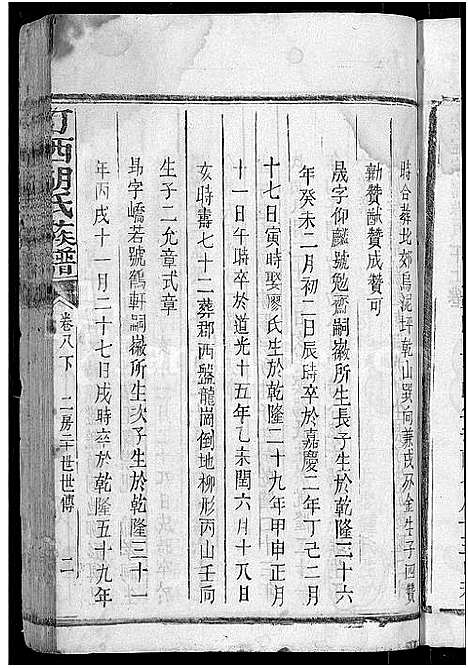 時合葬北郊烏泥坪乾山巽向兼戌外金生子四贊
勷贊猷贊成贊可
晟字仰麟號勉齋嗣嶶所生長子生於乾隆二十六
年癸未二月初二日辰時卒於嘉慶二年丁己二月
十七日寅時娶廖氏生於乾隆二十九年甲申正月
十一日午時卒於道光十五年乙未閏六月十八日
亥時壽七十二葬郡西盤龍崗倒地柳形丙山壬向
生子二允章式章
昻字嶠若號鶴軒嗣嶶所生次子生於乾隆三十一
年丙戌十一月二十七日戌時卒於乾隆五十九年
汀西胡氏族譜
卷八下
二房二十世世傳
二